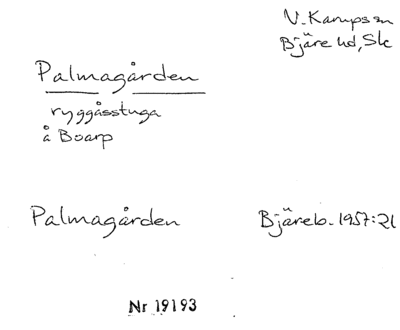 V. Karups sn
Bjäre hd, Sk
Palmagården
ryggåsstuga
å Boarp
Palmagården Bjäreb. 1957:21
Nr 19193